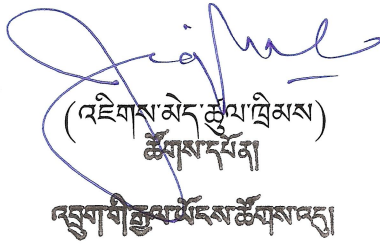 (འཇིགས་མེད་ཚུལ་ཁྲིམས)
ཚོགས་དཔོན།
འབྲུག་གི་རྒྱལ་ཡོངས་ཚོགས་འདུ།